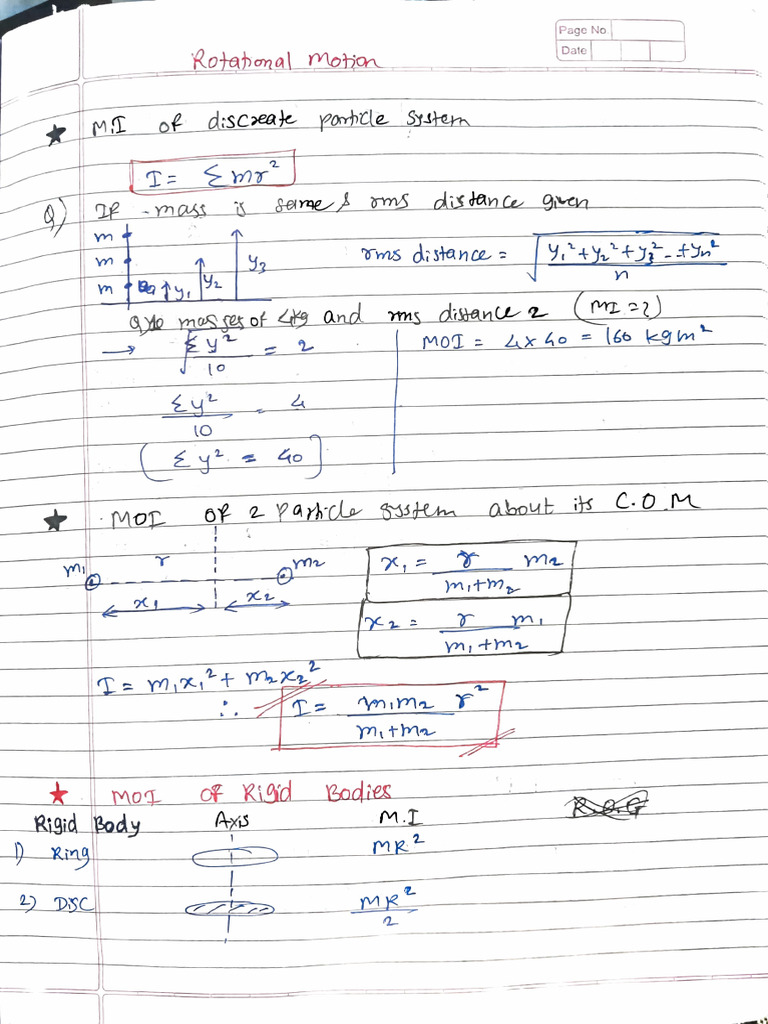 Page No
Date
Rotational Motion
★ M.I of discreate particle system
I = Σmr²
Q) If mass is same & rms distance given
m
m
m
y₁ y₂ y₃
rms distance = √((y₁² + y₂² + y₃² - - + yn²)/n)
masses of 4kg and rms distance 2 (MI = ?)
→ √(Σy²/10) = 2
MOI = 4 × 40 = 160 kgm²
Σy²/10 = 4
(Σy² = 40)
★ MOI of 2 Particle system about its C.O.M
m₁ r m₂
x₁ x₂
x₁ = r/(m₁+m₂) m₂
x₂ = r/(m₁+m₂) m₁
I = m₁x₁² + m₂x₂²
∴ I = m₁m₂/(m₁+m₂) r²
★ MOI of Rigid Bodies
Rigid Body Axis M.I
1) Ring MR²
2) DISC MR²/2